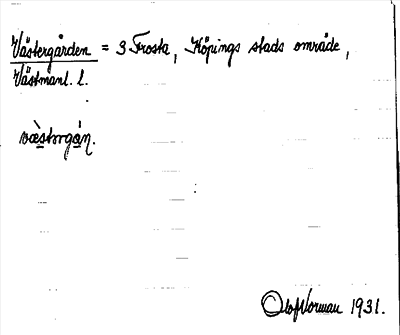 Västergården = 3 Frosta, Köpings stads område,
Västmanl. l.
Olof Norman 1931.